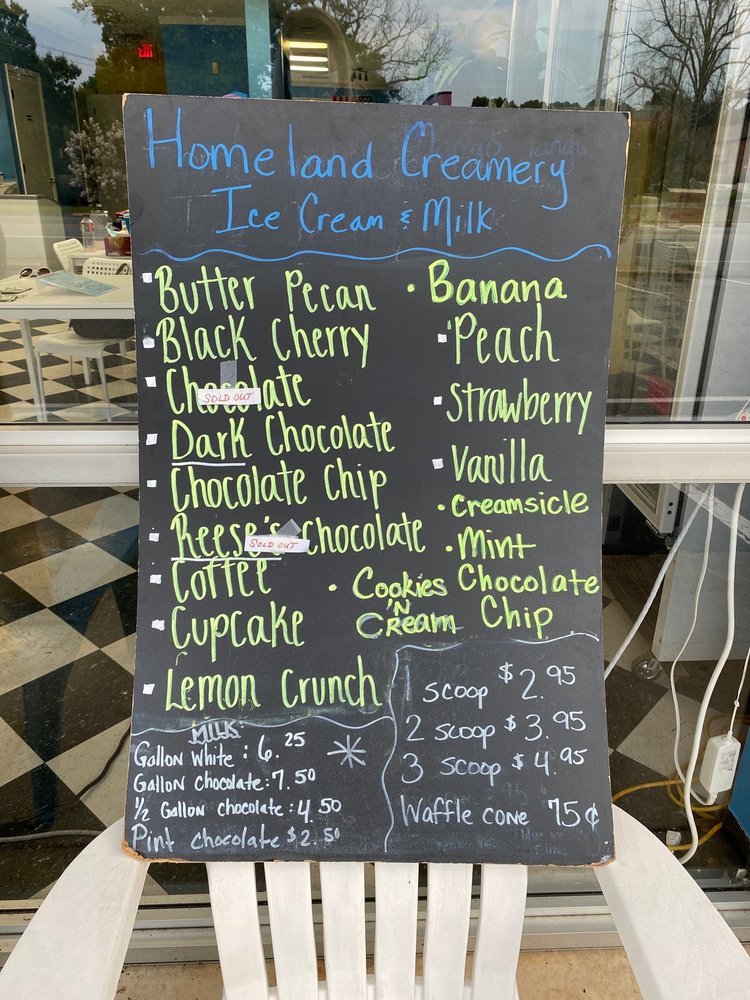 EXIT
Homeland Creamery
Ice Cream & Milk
Butter Pecan
Black Cherry
Chocolate
SOLD OUT
Dark Chocolate
Chocolate Chip
Reese's Chocolate
SOLD OUT
Coffee
Cupcake
Lemon Crunch
• Banana
Peach
Strawberry
Vanilla
• Creamsicle
• Mint
Chocolate
Chip
• Cookies
'N
Cream
MILK:
Gallon White: 6.25
Gallon Chocolate: 7.50
1/2 Gallon chocolate: 4.50
Pint chocolate $2.50
1 scoop $2.95
2 scoop $3.95
3 scoop $4.95
Waffle cone 75¢